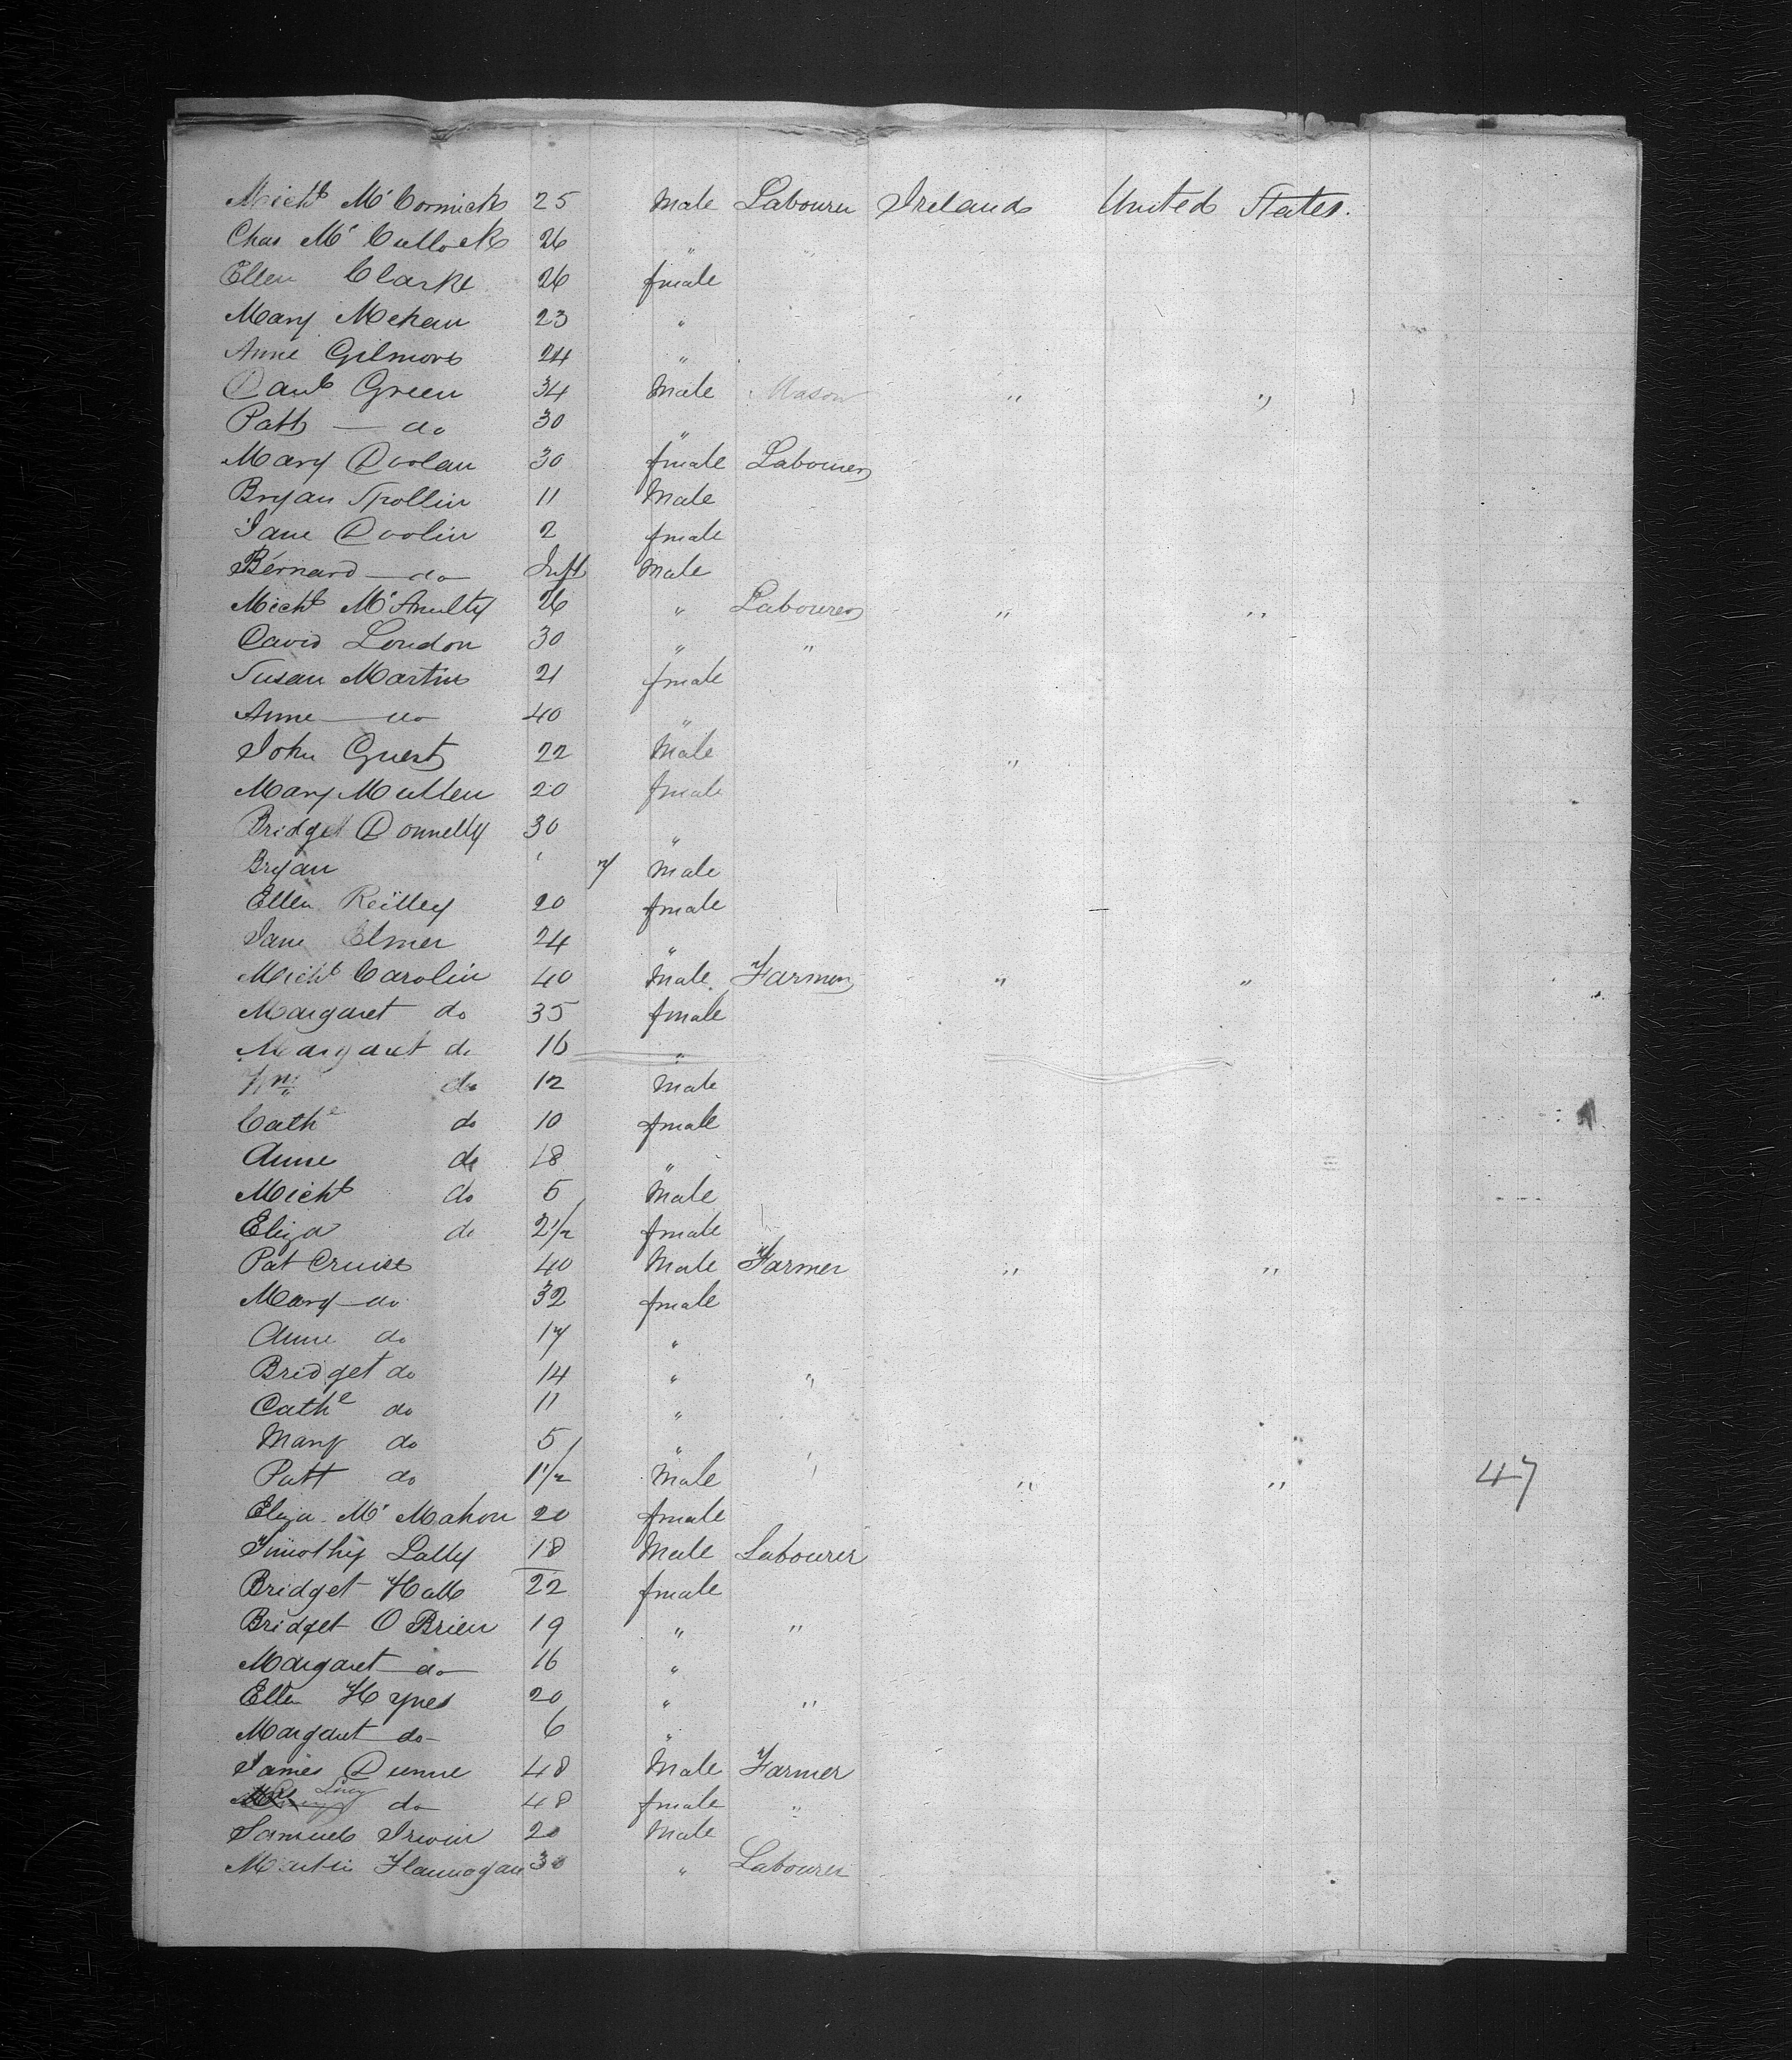 Michl McCormick 25 Male Labourer Ireland United States.
Chas McCullock 26 "
Ellen Clarke 26 female
Mary Mehan 23 "
Anne Gilmore 24 "
Danl Green 34 Male Mason " "
Patk — do 30 "
Mary Doolan 30 female Labourer
Bryan Spollin 11 Male
Jane Doolin 2 female
Bernard — do Inft Male
Michl McAnulty 26 " Labourer " "
David London 30 " "
Susan Martin 21 female
Anne — do 40 "
John Guest 22 Male "
Mary Mullen 20 female
Bridget Donnelly 30 "
Bryan 7 Male
Ellen Reilley 20 female
Jane Elmer 24 "
Michl Carolin 40 Male Farmer " "
Margaret do 35 female
Margaret do 16 "
Wm do 12 Male
Cathe do 10 female
Anne do 18 "
Michl do 5 Male
Eliza do 2 1/2 female
Pat Cruise 40 Male Farmer " "
Mary — do 32 female
Anne do 17 "
Bridget do 14 " "
Cathe do 11 "
Mary do 5 "
Patt do 1 1/2 Male " " 47
Eliza McMahon 20 female
Timothy Lally 18 Male Labourer
Bridget Hall 22 female
Bridget O Brien 19 " "
Margaret — do 16 "
Ellen Hynes 20 " "
Margaret do 6 "
James Dunne 48 Male Farmer
Lucy do 48 female "
Samuel Irwin 20 Male
Martin Flannagan 30 " Labourer